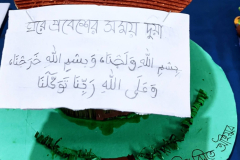 ঘরে প্রবেশের সময় দুআ
بِسْمِ اللّٰهِ وَلَجْنَا، وَبِسْمِ اللّٰهِ خَرَجْنَا،
وَعَلَى اللّٰهِ رَبِّنَا تَوَكَّلْنَا